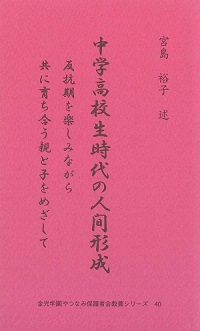 宮島 裕子 述
中学高校生時代の人間形成
反抗期を楽しみながら
共に育ち合う親と子をめざして
金光学園やつなみ保護者会教養シリーズ 40